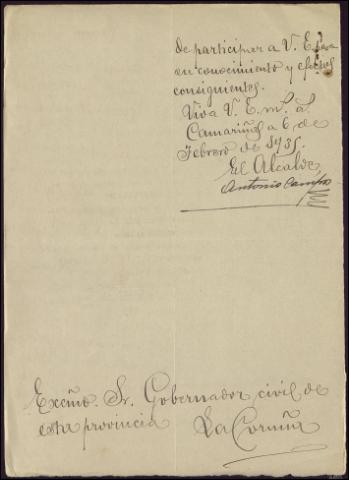 de participar a V. E. para
su conocimiento y efectos
consiguientes.
Viva V. E. m.s a.s
Camariñas a 6 de
Febrero de 1935.
El Alcalde,
Antonio Campos
Excmo. Sr. Gobernador civil de
esta provincia La Coruña